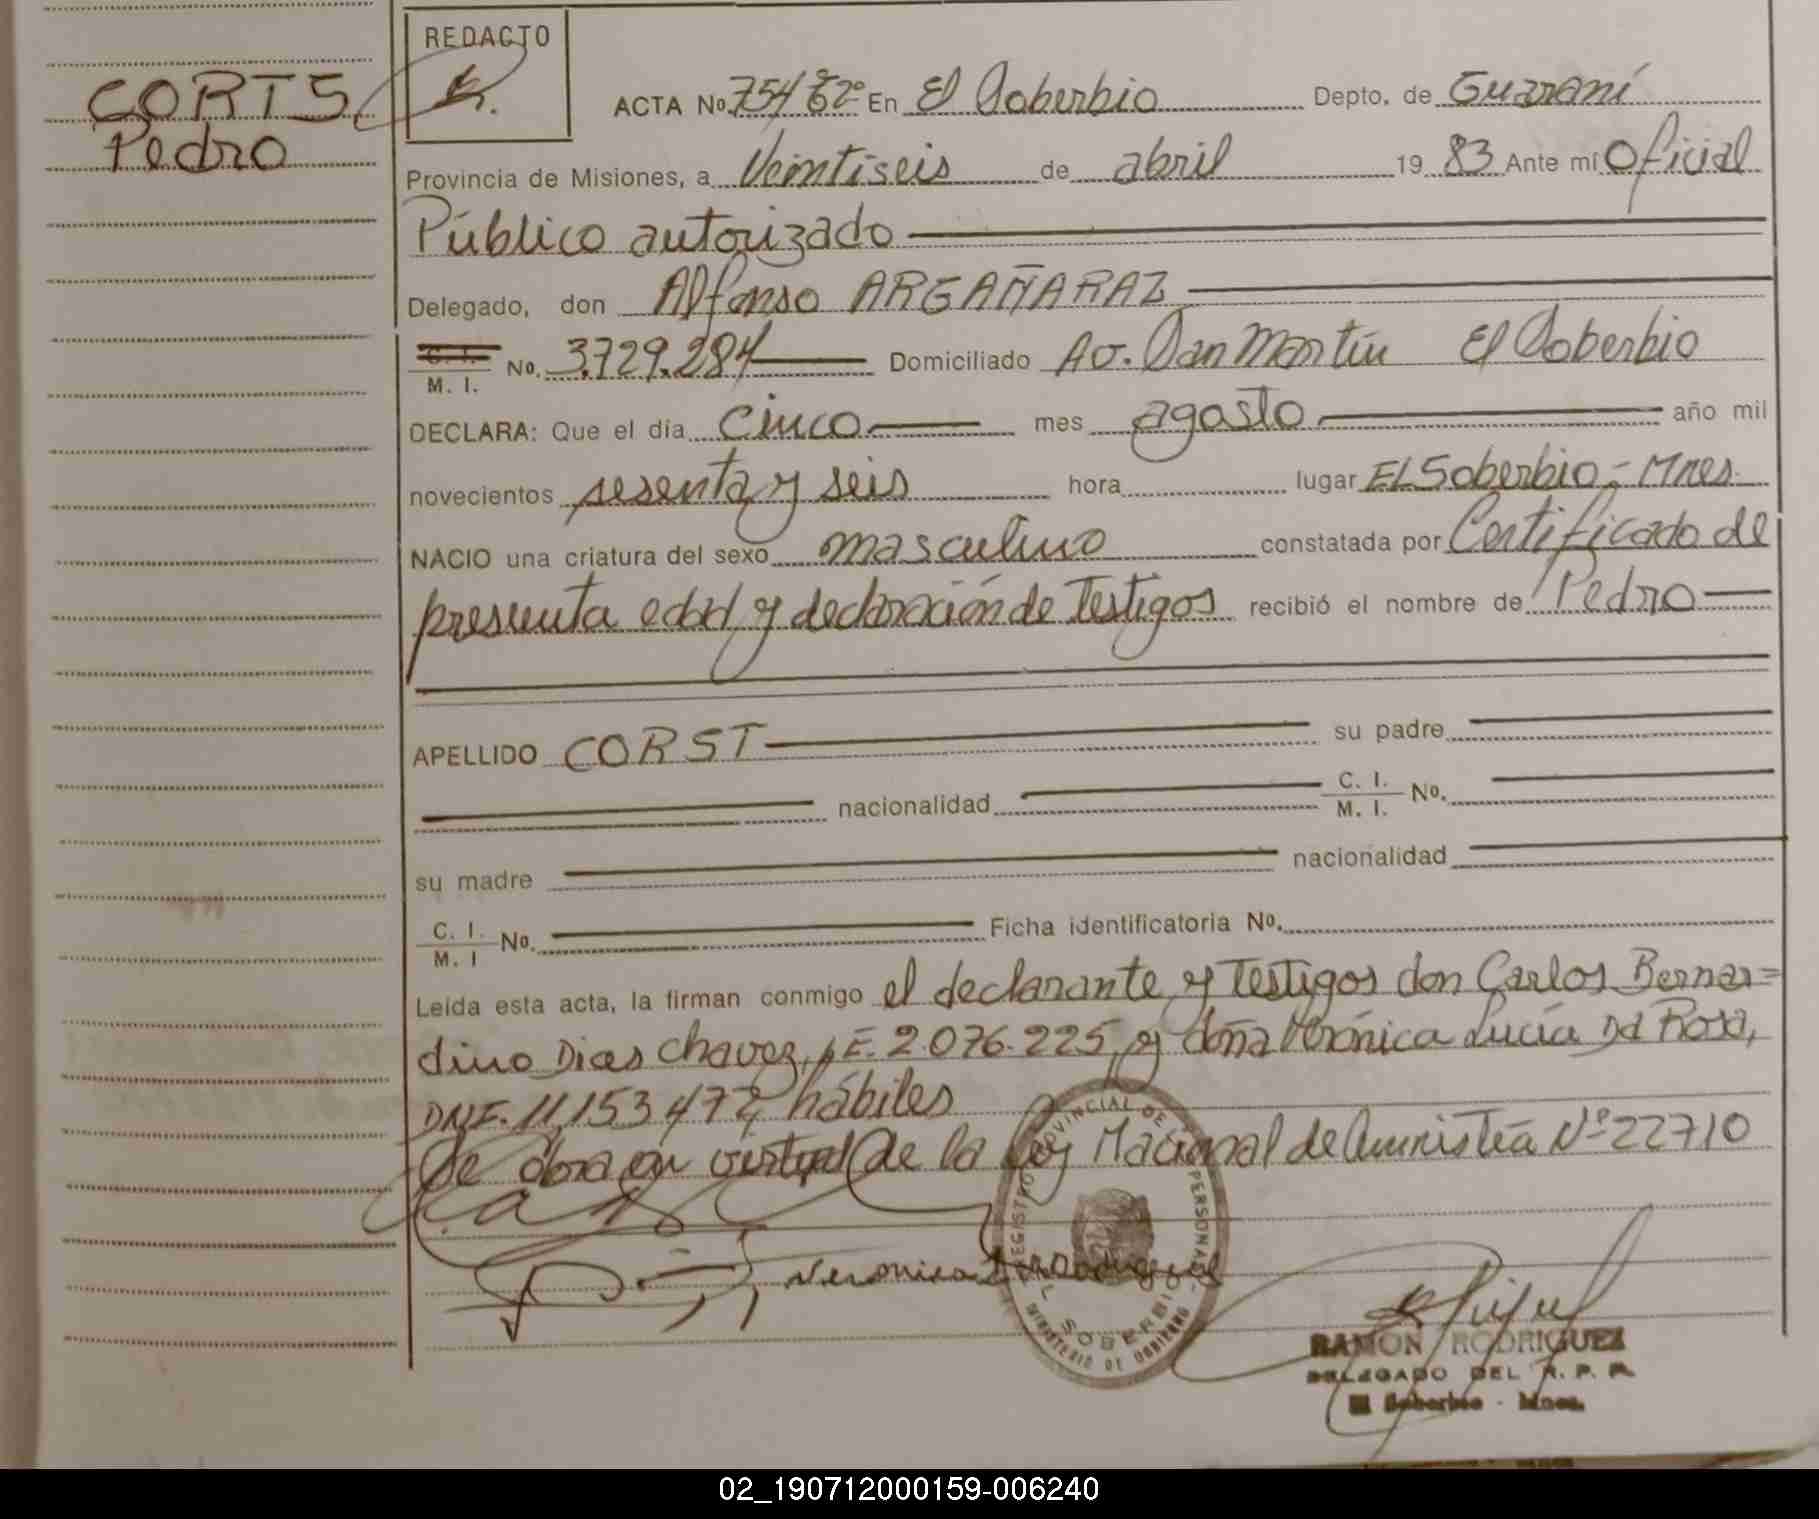 CORTS
Pedro
REDACTO
ACTA No. 754 Tº 2º En El Soberbio Depto. de Guaraní
Provincia de Misiones, a Veintiseis de abril 19 83 Ante mí Oficial
Público autorizado
Delegado, don Alfonso ARGAÑARAZ
C. I.
M. I. No. 3.729.284 Domiciliado Av. San Martín El Soberbio
DECLARA: Que el día cinco mes agosto año mil
novecientos sesenta y seis hora lugar EL Soberbio - Mnes.
NACIO una criatura del sexo masculino constatada por Certificado de
presunta edad y declaración de Testigos recibió el nombre de Pedro
APELLIDO CORST su padre
nacionalidad C. I.
M. I. No.
su madre nacionalidad
C. I.
M. I No. Ficha identificatoria No.
Leída esta acta, la firman conmigo el declarante y Testigos don Carlos Bernar=
dino Dias Chavez, L.E. 2.076.225, y doña Verónica Lucía Da Rosa,
DNI. 11,153,472, hábiles
Se obra en virtud de la Ley Nacional de Amnistía Nº 22710
Veronica
REGISTRO PROVINCIAL DE PERSONAS
EL SOBERBIO
MINISTERIO DE GOBIERNO
RAMON RODRIGUEZ
DELEGADO DEL R. P. P.
El Soberbio - Mnes.
02_190712000159-006240